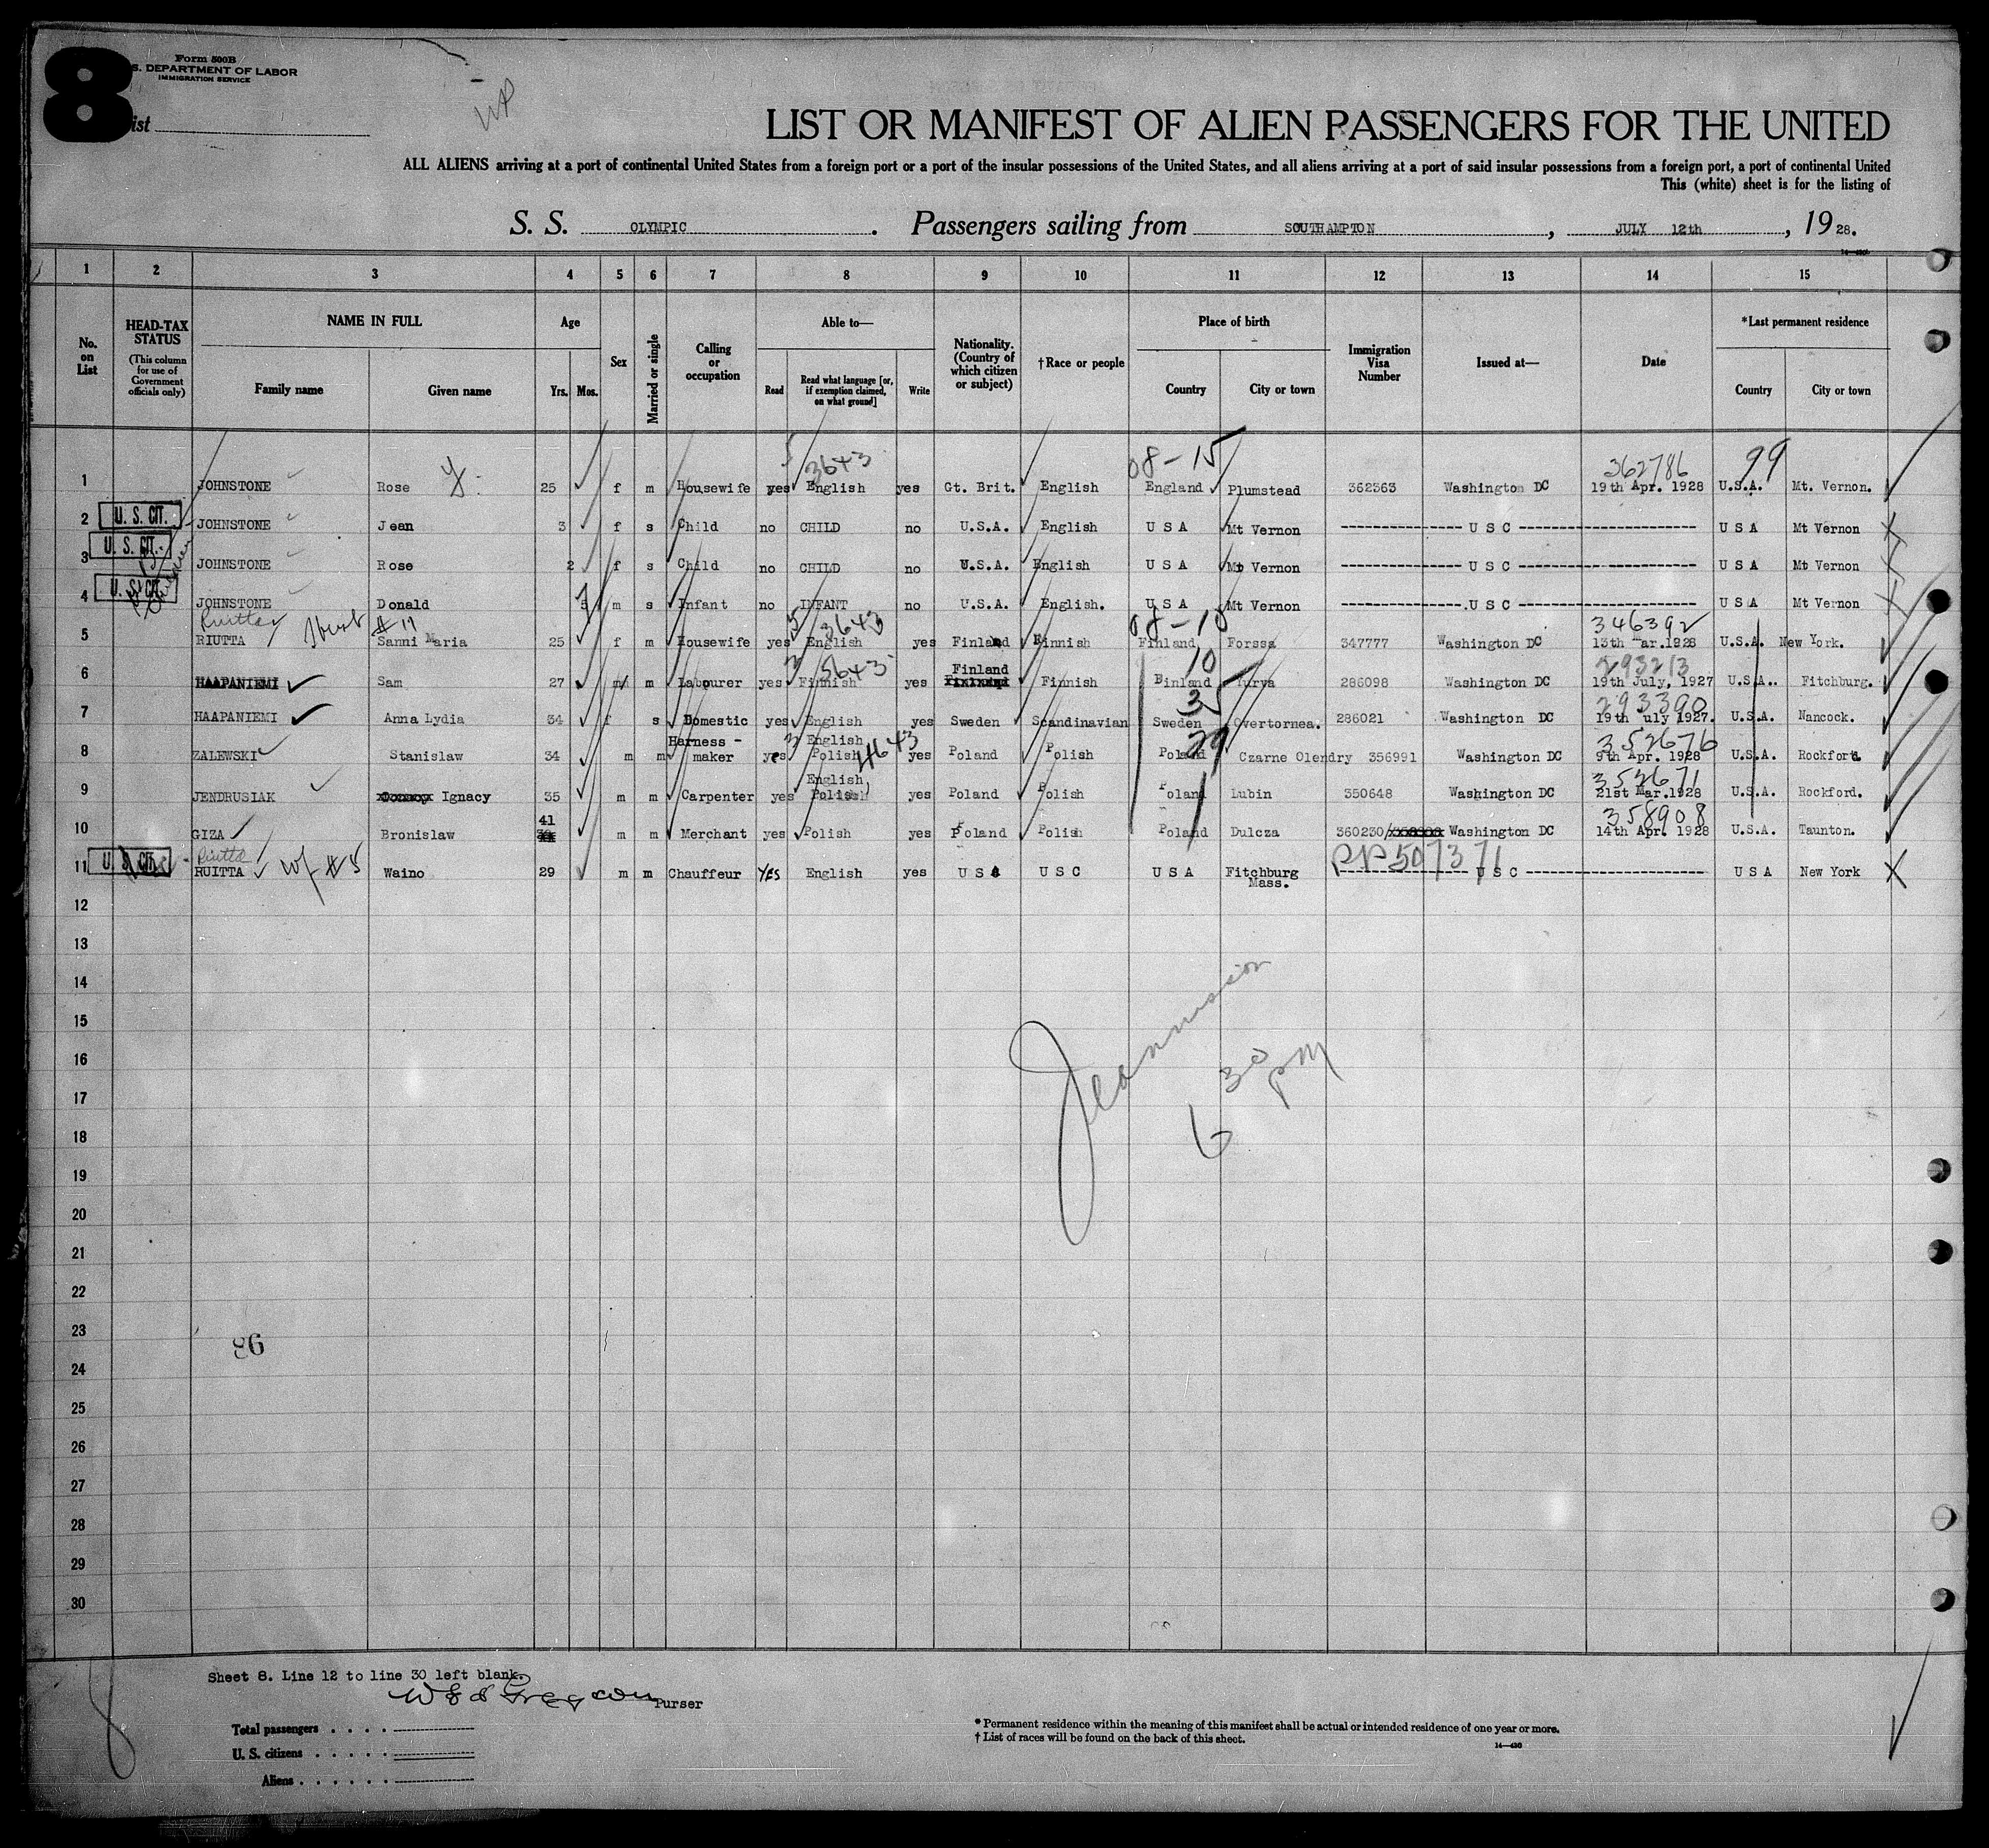 8
Form 500B
S. DEPARTMENT OF LABOR
IMMIGRATION SERVICE
ist
LIST OR MANIFEST OF ALIEN PASSENGERS FOR THE UNITED
ALL ALIENS arriving at a port of continental United States from a foreign port or a port of the insular possessions of the United States, and all aliens arriving at a port of said insular possessions from a foreign port, a port of continental United
This (white) sheet is for the listing of
S. S. OLYMPIC . Passengers sailing from SOUTHAMPTON , JULY 12th , 1928.
1 2 3 4 5 6 7 8 9 10 11 12 13 14 15
No. on List
HEAD-TAX STATUS (This column for use of Government officials only)
NAME IN FULL
Family name Given name
Age
Yrs. Mos.
Sex
Married or single
Calling or occupation
Able to—
Read Read what language [or, if exemption claimed, on what ground] Write
Nationality. (Country of which citizen or subject)
†Race or people
Place of birth
Country City or town
Immigration Visa Number
Issued at—
Date
*Last permanent residence
Country City or town
3643 08-15 362786 99
1 JOHNSTONE Rose 25 f m Housewife yes English yes Gt. Brit. English England Plumstead 362363 Washington DC 19th Apr. 1928 U.S.A. Mt. Vernon.
2 U. S. CIT. JOHNSTONE Jean 3 f s Child no CHILD no U.S.A. English U S A Mt Vernon U S C U S A Mt Vernon
3 U. S. CIT. JOHNSTONE Rose 2 f s Child no CHILD no U.S.A. English U S A Mt Vernon U S C U S A Mt Vernon
4 U. S. CIT. JOHNSTONE Donald m s Infant no INFANT no U.S.A. English. U S A Mt Vernon U S C U S A Mt Vernon
Riutta # 11 3643 346392
5 RIUTTA Sanni Maria 25 f m Housewife yes English yes Finland Finnish Finland Forssa 347777 Washington DC 13th Mar.1928 U.S.A. New York.
3643 Finland 10 293213
6 HAAPANIEMI Sam 27 m m Labourer yes Finnish yes Finnish Finland Turya 286098 Washington DC 19th July, 1927 U.S.A. Fitchburg.
35 293390
7 HAAPANIEMI Anna Lydia 34 f s Domestic yes English yes Sweden Scandinavian Sweden Overtornea. 286021 Washington DC 19th July 1927. U.S.A. Nancock.
Harness- English 4643 29 352676
8 ZALEWSKI Stanislaw 34 m m maker yes Polish yes Poland Polish Poland Czarne Olendry 356991 Washington DC 9th Apr. 1928 U.S.A. Rockford.
English, 352671
9 JENDRUSIAK Ignacy 35 m m Carpenter yes Polish yes Poland Polish Poland Lubin 350648 Washington DC 21st Mar.1928 U.S.A. Rockford.
41 358908
10 GIZA Bronislaw m m Merchant yes Polish yes Poland Polish Poland Dulcza 360230/ Washington DC 14th Apr. 1928 U.S.A. Taunton.
Riutta PP 507371
11 U. S. CIT. RUITTA Wf #5 Waino 29 m m Chauffeur YES English yes U S A U S C U S A Fitchburg Mass. U S C U S A New York
12
13
14
15
16
17
18
19
20
21
22
23
24
25
26
27
28
29
30
6 30 pm
96
Sheet 8. Line 12 to line 30 left blank.
Purser
Total passengers
U. S. citizens
Aliens
* Permanent residence within the meaning of this manifest shall be actual or intended residence of one year or more.
† List of races will be found on the back of this sheet.
14—430
8